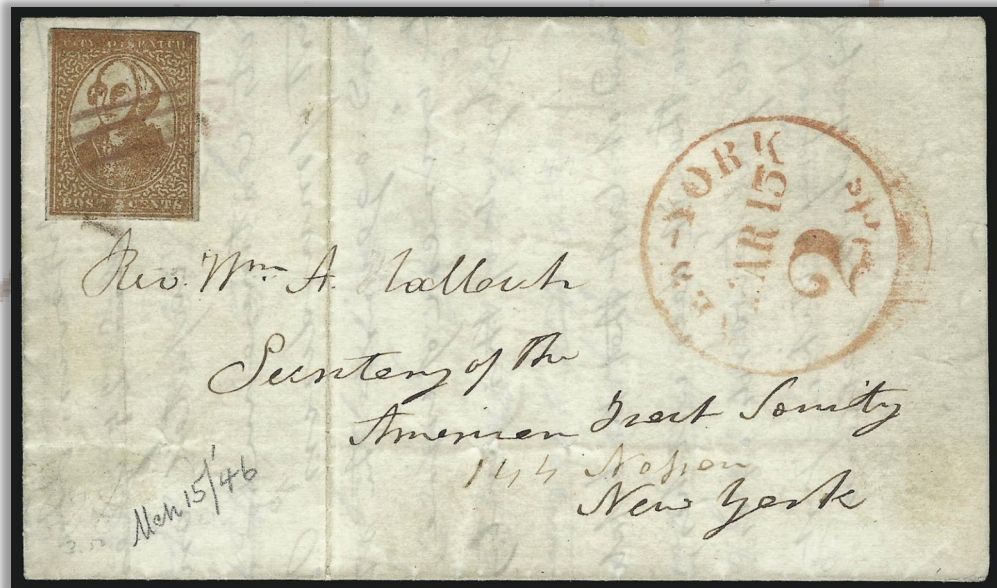 CITY DISPATCH
POST 2 CENTS
NEW-YORK
MAR 15
2 cts
Rev. Wm A. Hallock
Secretary of the
American Tract Society
144 Nassau
New York
Mch 15/46
3.50